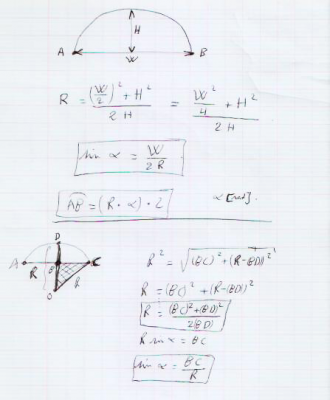 H
A B
W
R = ((W/2)² + H²)/(2H) = (W²/4 + H²)/(2H)
sin α = W/(2R)
AB = (R · α) · 2 α [rad].
D
A R B C
R
O
R² = √((BC)² + (R-BD)²)
R = (BC)² + (R-BD)²
R = ((BC)² + (BD)²)/(2(BD))
R sin α = BC
sin α = BC/R